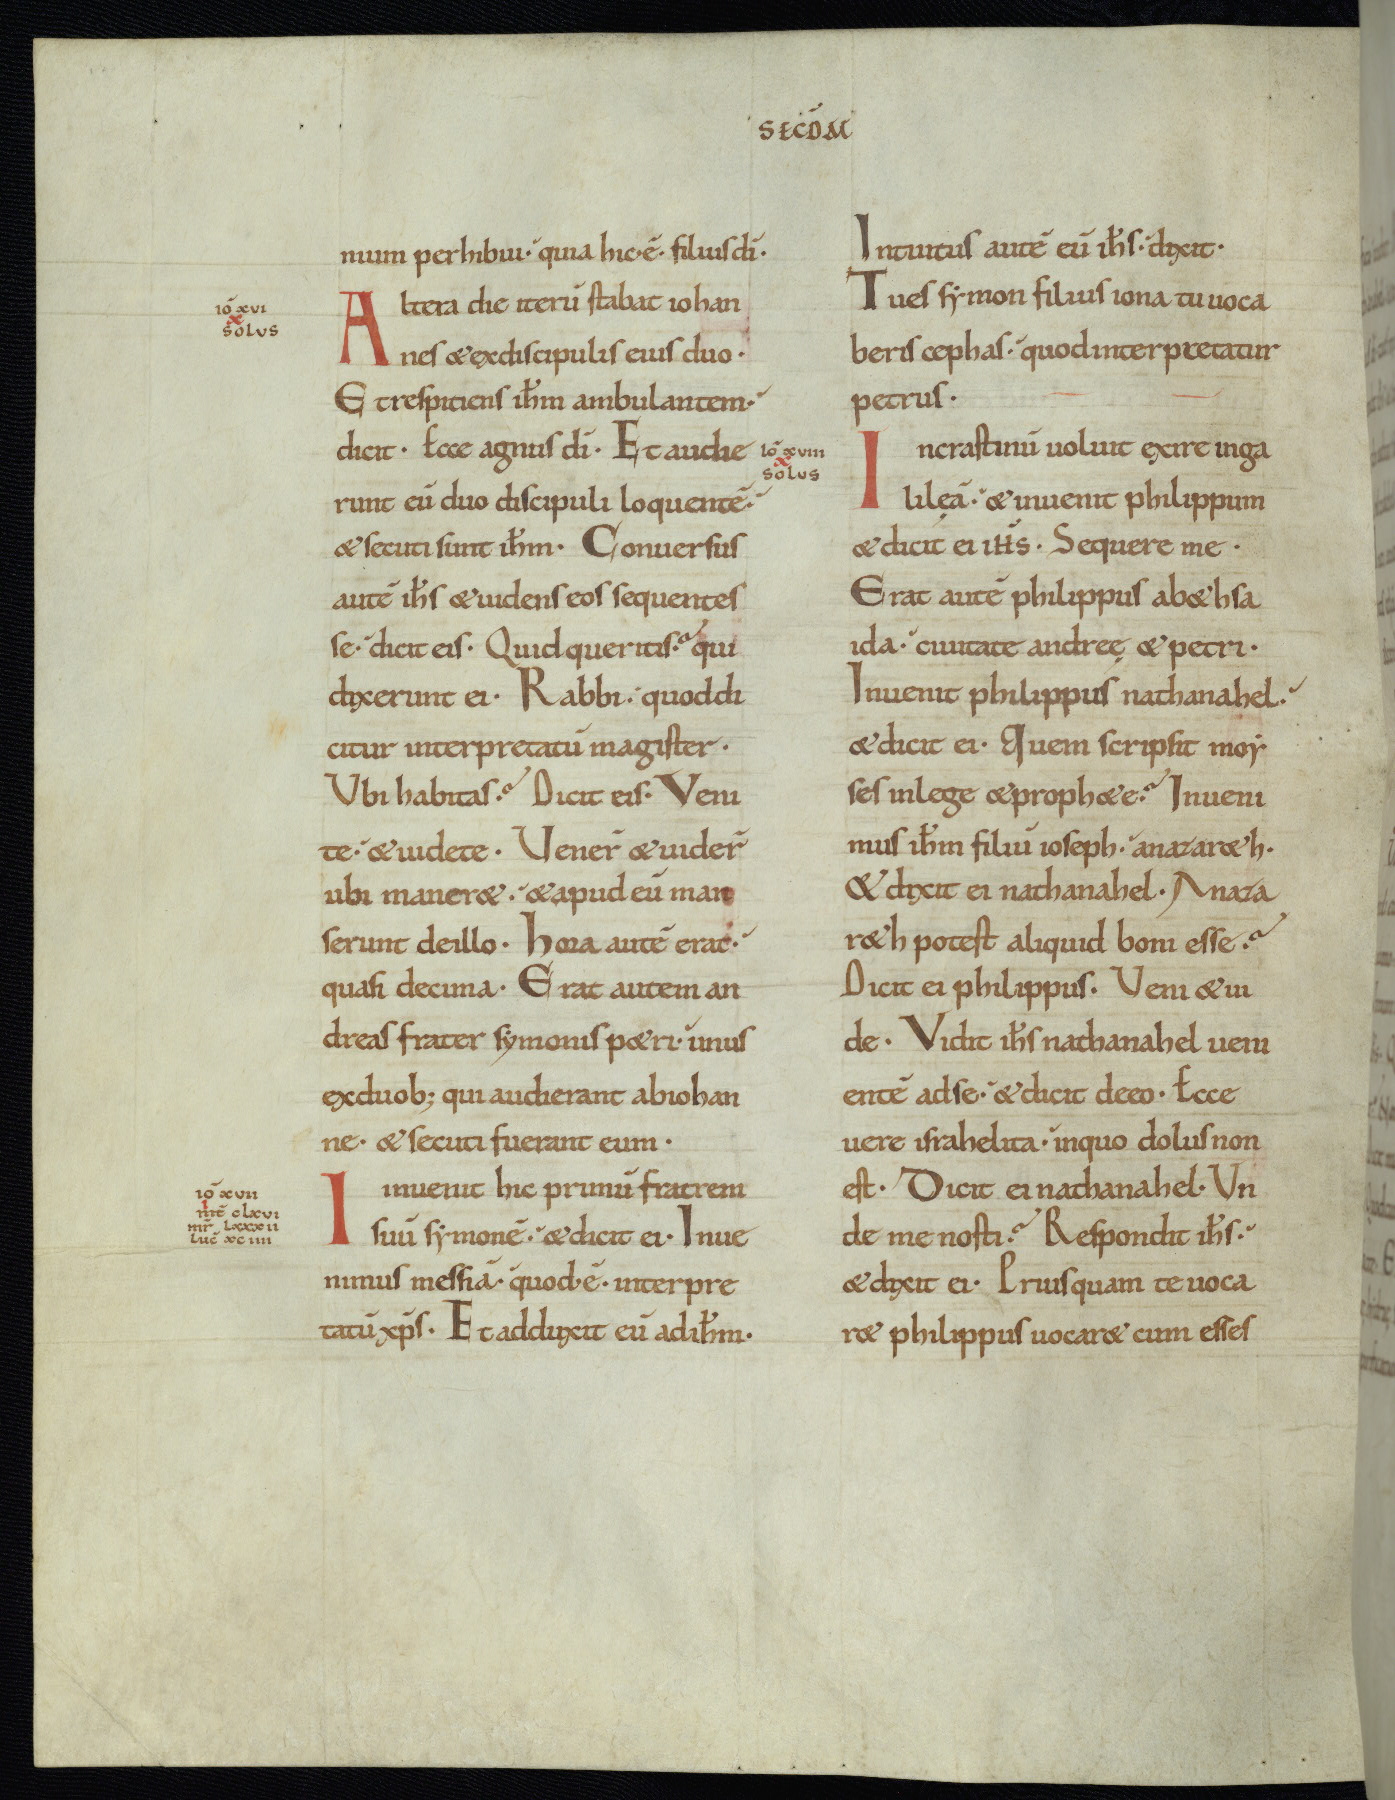 SECD̄M
nium perhibui· quia hic·ē· filius dī·
iō xvi
x
solus
Altera die iterū stabat iohan
nes & ex discipulis eius duo·
Et respiciens ih̄m ambulantem·
dicit· Ecce agnus dī· Et audie
runt eū duo discipuli loquentē·
& secuti sunt ih̄m· Conuersus
autē ih̄s & uidens eos sequentes
se· dicit eis· Quid queritis? qui
dixerunt ei· Rabbi· quod di
citur interpretatū magister·
Vbi habitas? Dicit eis· Veni
te· & uidete· Vener̄ & uider̄
ubi maner&· & apud eū man
serunt de illo· Hora autē erat·
quasi decima· Erat autem an
dreas frater sẏmonis p&ri· unus
ex duob; qui audierant ab iohan
ne· & secuti fuerant eum·
iō xvii
i
mt̄ clxvi
mr̄ lxxxii
luc̄ xciiii
Inuenit hic primū fratrem
suū sẏmonē· & dicit ei· Inue
nimus messiā· quod·ē· interpre
tatū xp̄s· Et adduxit eū ad ih̄m·
Intuitus autē eū ih̄s· dixit·
Tu es sẏmon filius iona tu uoca
beris cephas· quod interpretatur
petrus·
iō xviii
x
solus
In crastinū uoluit exire in ga
lileȩ̄ā· & inuenit philippum
& dicit ei ih̄s· Sequere me·
Erat autē philippus ab&hsa
ida· ciuitate andreę & petri·
Inuenit philippus nathanahel·
& dicit ei· Quem scripsit moẏ
ses in lege & proph&e? Inueni
mus ih̄m filiū ioseph· a nazar&h·
& dixit ei nathanahel· A naza
r&h potest aliquid boni esse?
Dicit ei philippus· Veni & ui
de· Vidit ih̄s nathanahel ueni
entē ad se· & dicit de eo· Ecce
uere israhelita· in quo dolus non
est· Dicit ei nathanahel· Vn
de me nosti? Respondit ih̄s·
& dixit ei· Priusquam te uoca
r& philippus uocar& cum esses